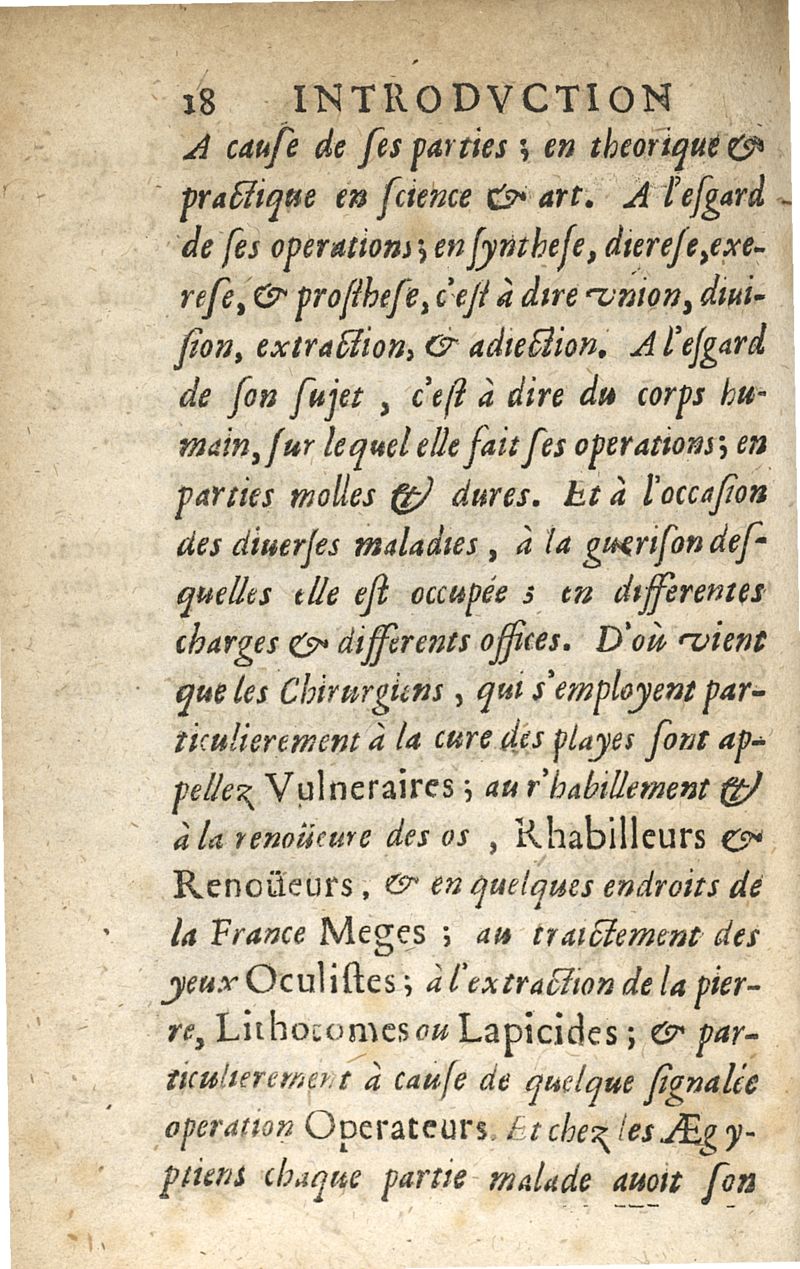 18 INTRODVCTION
A cauſe de ſes parties ; en theorique &
practique en ſcience & art. A l'eſgard
de ſes operations ; en ſyntheſe, diereſe, exe-
reſe, & proſtheſe, c'eſt à dire vnion, diui-
ſion, extraction, & adiection. A l'eſgard
de ſon ſujet , c'eſt à dire du corps hu-
main, ſur lequel elle fait ſes operations ; en
parties molles & dures. Et à l'occaſion
des diuerſes maladies , à la gueriſon deſ-
quelles elle eſt occupée ; en differentes
charges & differents offices. D'où vient
que les Chirurgiens , qui s'employent par-
ticulierement à la cure des playes ſont ap-
pellez Vulneraires ; au r'habillement &
à la renoüeure des os , Rhabilleurs &
Renoüeurs , & en quelques endroits de
la France Meges ; au traictement des
yeux Oculiſtes ; à l'extraction de la pier-
re, Lithotomes ou Lapicides ; & par-
ticulierement à cauſe de quelque ſignalée
operation Operateurs. Et chez les Ægy-
ptiens chaque partie malade auoit ſon